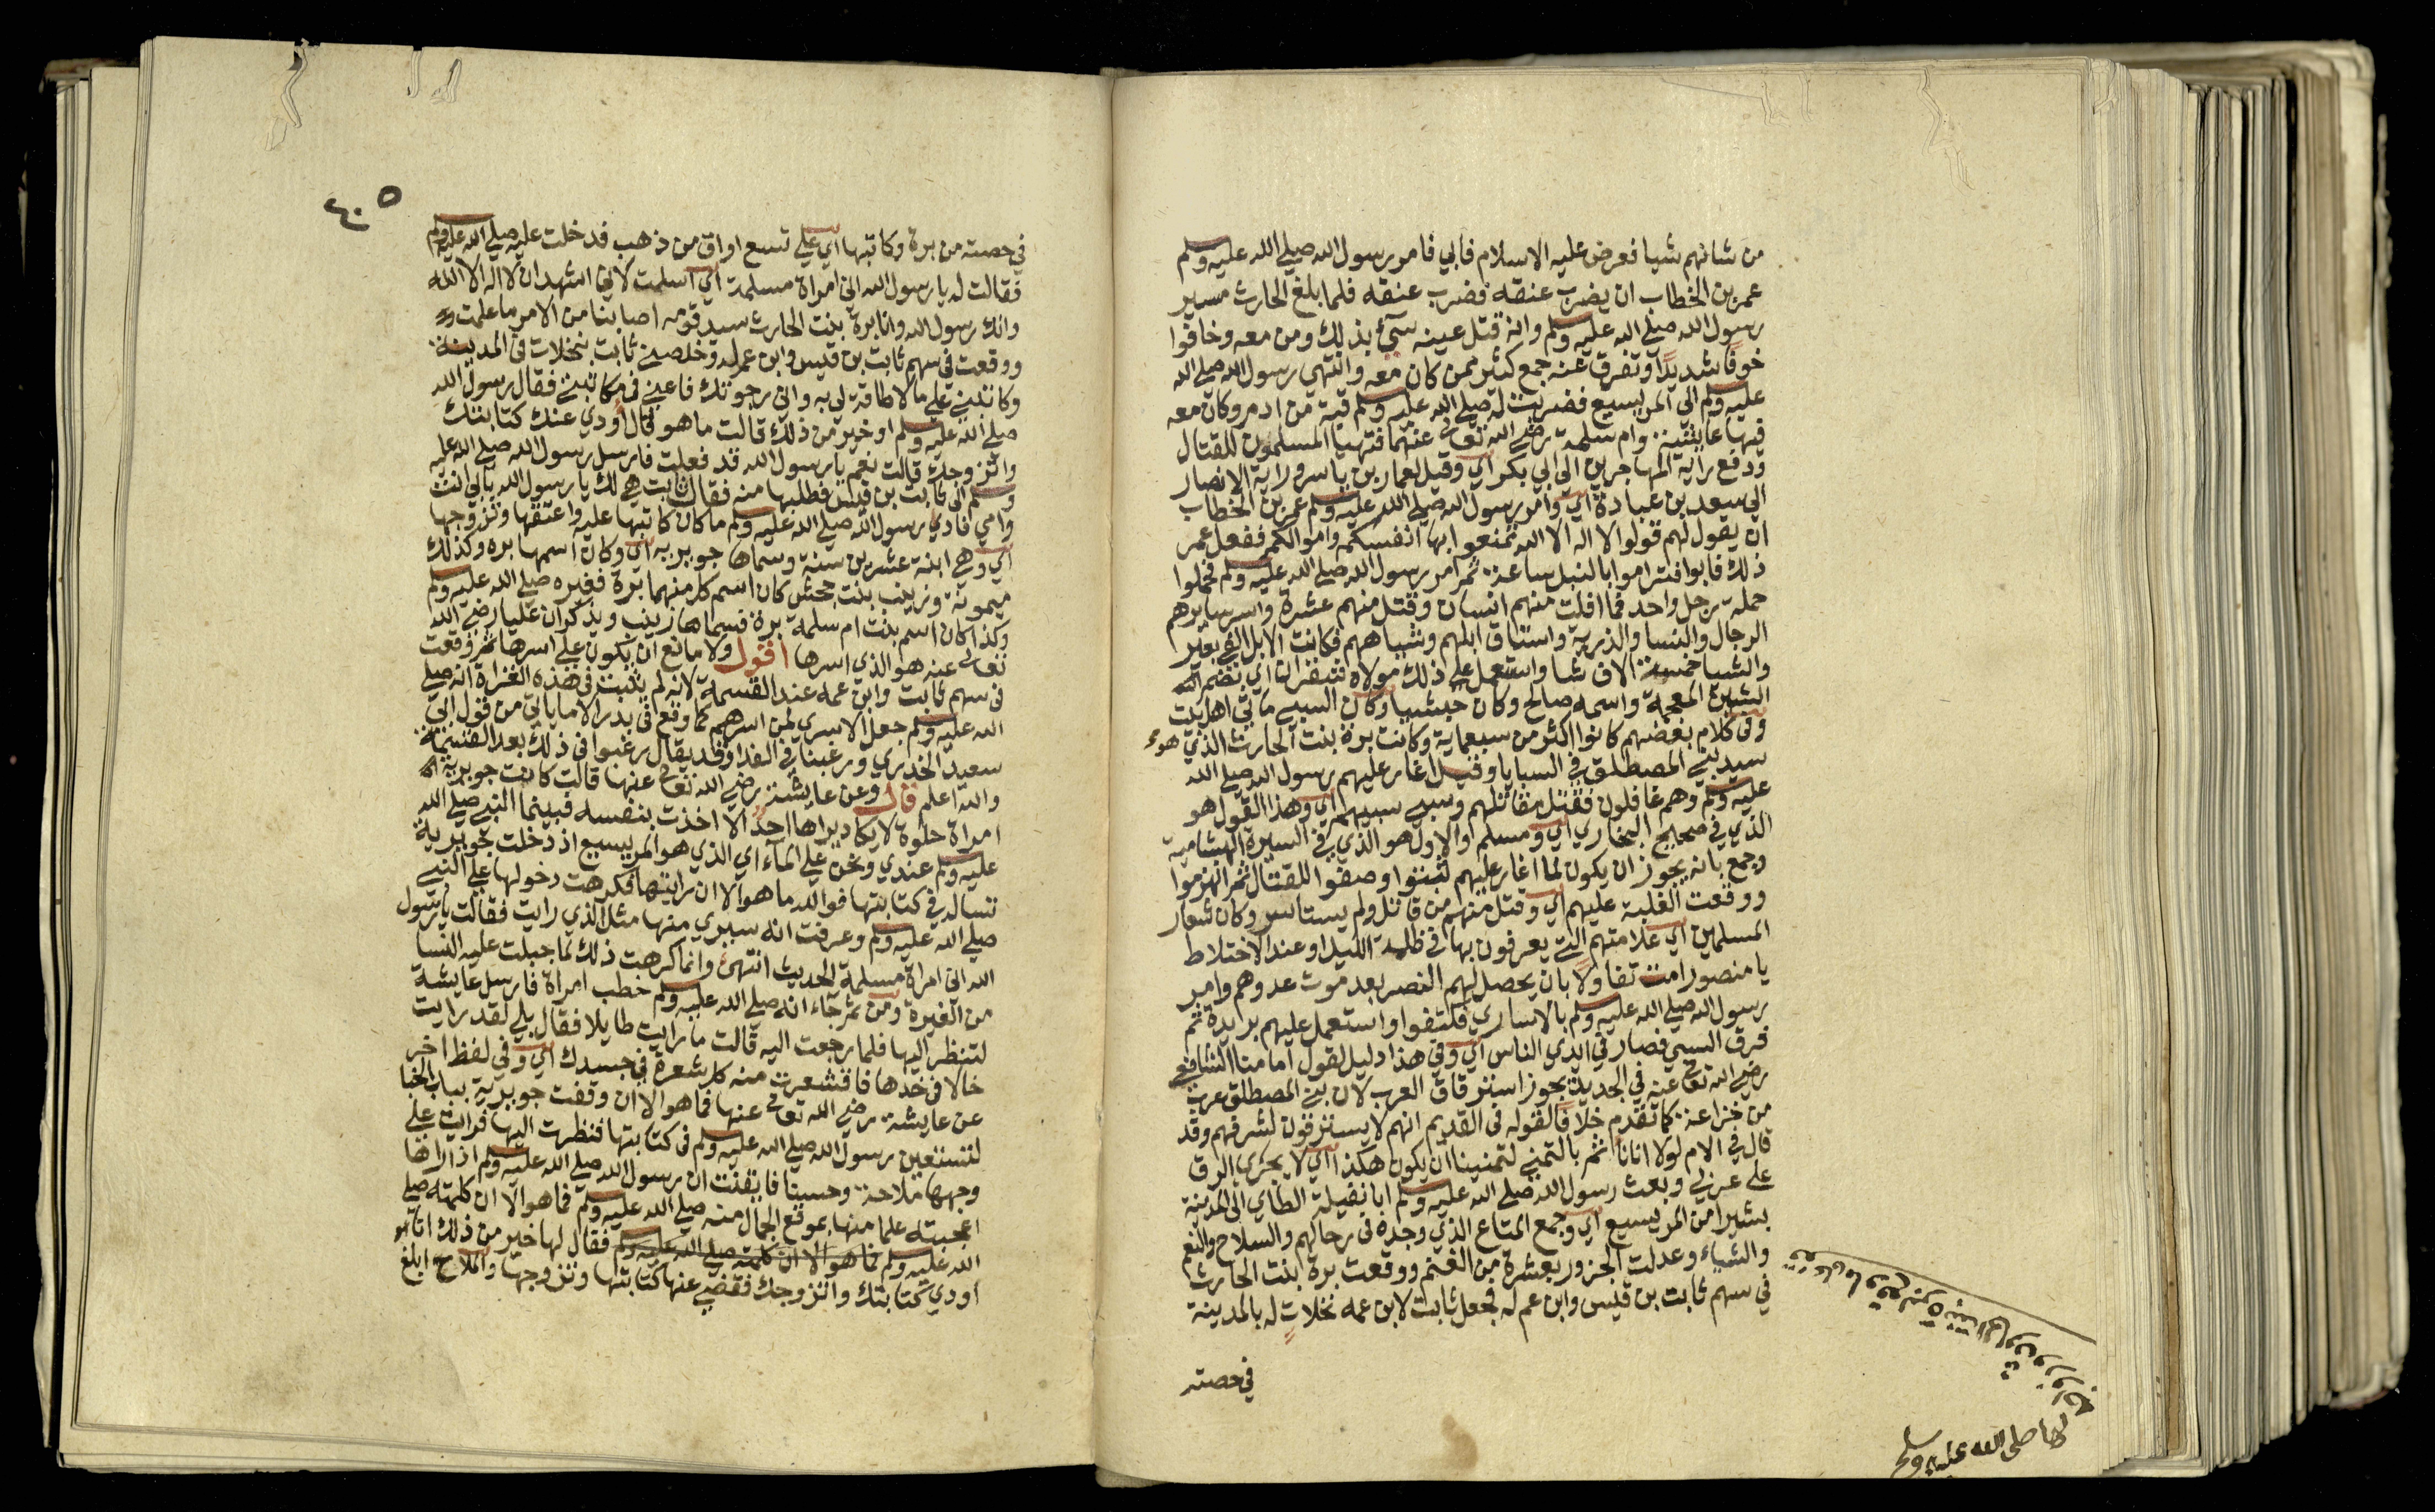 من شانهم شيا فعرض عليه الاسلام فابي فامر رسول الله صلي الله عليه وسلم
عمر بن الخطاب ان يضرب عنقه فضرب عنقه فلما بلغ الحارث مسير
رسول الله صلي الله عليه وسلم وانه قتل عينه سيئ بذلك ومن معه وخافوا
خوفا شديدا وتفرق عنه جمع كثير ممن كان معه وانتهي رسول الله صلي الله
عليه وسلم الي المريسيع فضربت له صلي الله عليه وسلم قبة من ادم وكان معه
فيها عايشة وام سلمة رضي الله تعالي عنهما فتهيا المسلمون للقتال
ودفع راية المهاجرين الي ابي بكر اي وقيل لعمار بن ياسر وراية الانصار
الي سعد بن عبادة اي وامر رسول الله صلي الله عليه وسلم عمر بن الخطاب
ان يقول لهم قولوا لا اله الا الله تمنعوا بها انفسكم واموالكم ففعل عمر
ذلك فابوا فتراموا بالنبل ساعة ثم امر رسول الله صلي الله عليه وسلم فحملوا
حملة رجل واحد فما افلت منهم انسان وقتل منهم عشرة واسر سايرهم
الرجال والنسا والذرية واستاق ابلهم وشياههم فكانت الابل الفي بعير
والشيا خمسة الاف شا واستعمل علي ذلك مولاه شقران اي بضم
الشين المعجمة واسمه صالح وكان حبشيا وكان السبي مايتي اهل بيت
وفي كلام بعضهم كانوا اكثر من سبعماية وكانت برة بنت الحارث الذي هو
سيد بني المصطلق في السبايا وقيل اغار عليهم رسول الله صلي الله
عليه وسلم وهم غافلون فقتل مقاتلهم وسبي سبيهم اي وهذا القول هو
الذي في صحيح البخاري اي ومسلم والاول هو الذي في السيرة الهشامية
وجمع بانه يجوز ان يكون لما اغار عليهم ثبتوا وصفوا للقتال ثم انهزموا
ووقعت الغلبة عليهم اي وقتل منهم من قاتل ولم يستاسر وكان شعار
المسلمين اي علامتهم التي يعرفون بها في ظلمة الليل او عند الاختلاط
يا منصور امت تفاولا بان يحصل لهم النصر بعد موت عدوهم وامر
رسول الله صلي الله عليه وسلم بالاساري فكتفوا واستعمل عليهم بريدة ثم
فرق السبي فصار في ايدي الناس اي وفي هذا دليل لقول امامنا الشافعي
رضي الله تعالي عنه في الجديد يجوز استرقاق العرب لان بني المصطلق عرب
من خزاعة كما تقدم خلافا لقوله في القديم انهم لا يسترقون لشرفهم وقد
قال في الام لولا انا ناثم بالتمني لتمنينا ان يكون هكذا اي لا يجري الرق
علي عربي وبعث رسول الله صلي الله عليه وسلم ابا نضيلة الطاي الي المدينة
بشيرا من المريسيع اي وجمع المتاع الذي وجده في رحالهم والسلاح والنعم
والشياء وعدلت الجزور بعشرة من الغنم ووقعت برة ابنت الحارث
في سهم ثابت بن قيس وابن عم له فجعل ثابت لابن عمه نخلات له بالمدينة
في حصته
صلي الله عليه وسلم
٤٠٥
في حصته من برة وكاتبها اي علي تسع اواق من ذهب فدخلت عليه صلي الله عليه وسلم
فقالت له يا رسول الله اني امراة مسلمة اي اسلمت لاني اشهد ان لا اله الا الله
وانك رسول الله وانا برة بنت الحارث سيد قومه اصابنا من الامر ما علمت
ووقعت في سهم ثابت بن قيس وابن عم له وخلصني ثابت بنخلات في المدينة
وكاتبني علي ما لا طاقة لي به واني رجوتك فاعني في مكاتبتي فقال رسول الله
صلي الله عليه وسلم او خير من ذلك قالت ما هو قال اودي عنك كتابتك
واتزوجك قالت نعم يا رسول الله قد فعلت فارسل رسول الله صلي الله عليه
وسلم الي ثابت بن قيس فطلبها منه فقال ثابت هي لك يا رسول الله بابي انت
وامي فادي رسول الله صلي الله عليه وسلم ما كان كاتبها عليه واعتقها وتزوجها
اي وهي ابنة عشرين سنة وسماها جويرية اي وكان اسمها برة وكذلك
ميمونة وزينب بنت جحش كان اسم كل منهما برة فغيره صلي الله عليه وسلم
وكذا كان اسم بنت ام سلمة برة فسماها زينب ويذكر ان عليا رضي الله
تعالي عنه هو الذي اسرها اقول ولا مانع ان يكون علي اسرها ثم وقعت
في سهم ثابت وابن عمه عند القسمة لانه لم يثبت في هذه الغزاة انه صلي
الله عليه وسلم جعل الاسري لمن اسرهم كما وقع في بدر الا ما ياتي من قول ابي
سعيد الخدري ورغبنا في الفدا وقد يقال رغبوا في ذلك بعد القسمة
والله اعلم قال وعن عايشة رضي الله تعالي عنها قالت كانت جويرية
امراة حلوة لا يكاد يراها احد الا اخذت بنفسه فبينما النبي صلي الله
عليه وسلم عندي ونحن علي الماء اي الذي هو المريسيع اذ دخلت جويرية
تساله في كتابتها فوالله ما هو الا ان رايتها فكرهت دخولها علي النبي
صلي الله عليه وسلم وعرفت انه سيري منها مثل الذي رايت فقالت يا رسول
الله اني امراة مسلمة الحديث انتهي وانما كرهت ذلك لما جبلت عليه النسا
من الغيرة ومن ثم جاء انه صلي الله عليه وسلم خطب امراة فارسل عايشة
لتنظر اليها فلما رجعت اليه قالت ما رايت طايلا فقال بلي لقد رايت
خالا في خدها فاقشعرت منه كل شعرة في جسدك اي وفي لفظ اخر
عن عايشة رضي الله تعالي عنها فما هو الا ان وقفت جويرية بباب الخبا
لتستعين رسول الله صلي الله عليه وسلم في كتابتها فنظرت اليها فرايت علي
وجهها ملاحة وحسنا فايقنت ان رسول الله صلي الله عليه وسلم اذا راها
اعجبته علما منها بموقع الجمال منه صلي الله عليه وسلم فما هو الا ان كلمته صلي
الله عليه وسلم فما هو الا ان كلمته صلي الله عليه وسلم فقال لها خير من ذلك انا
اودي كتابتك واتزوجك فقضي عنها كتابتها وتزوجها والملاح ابلغ